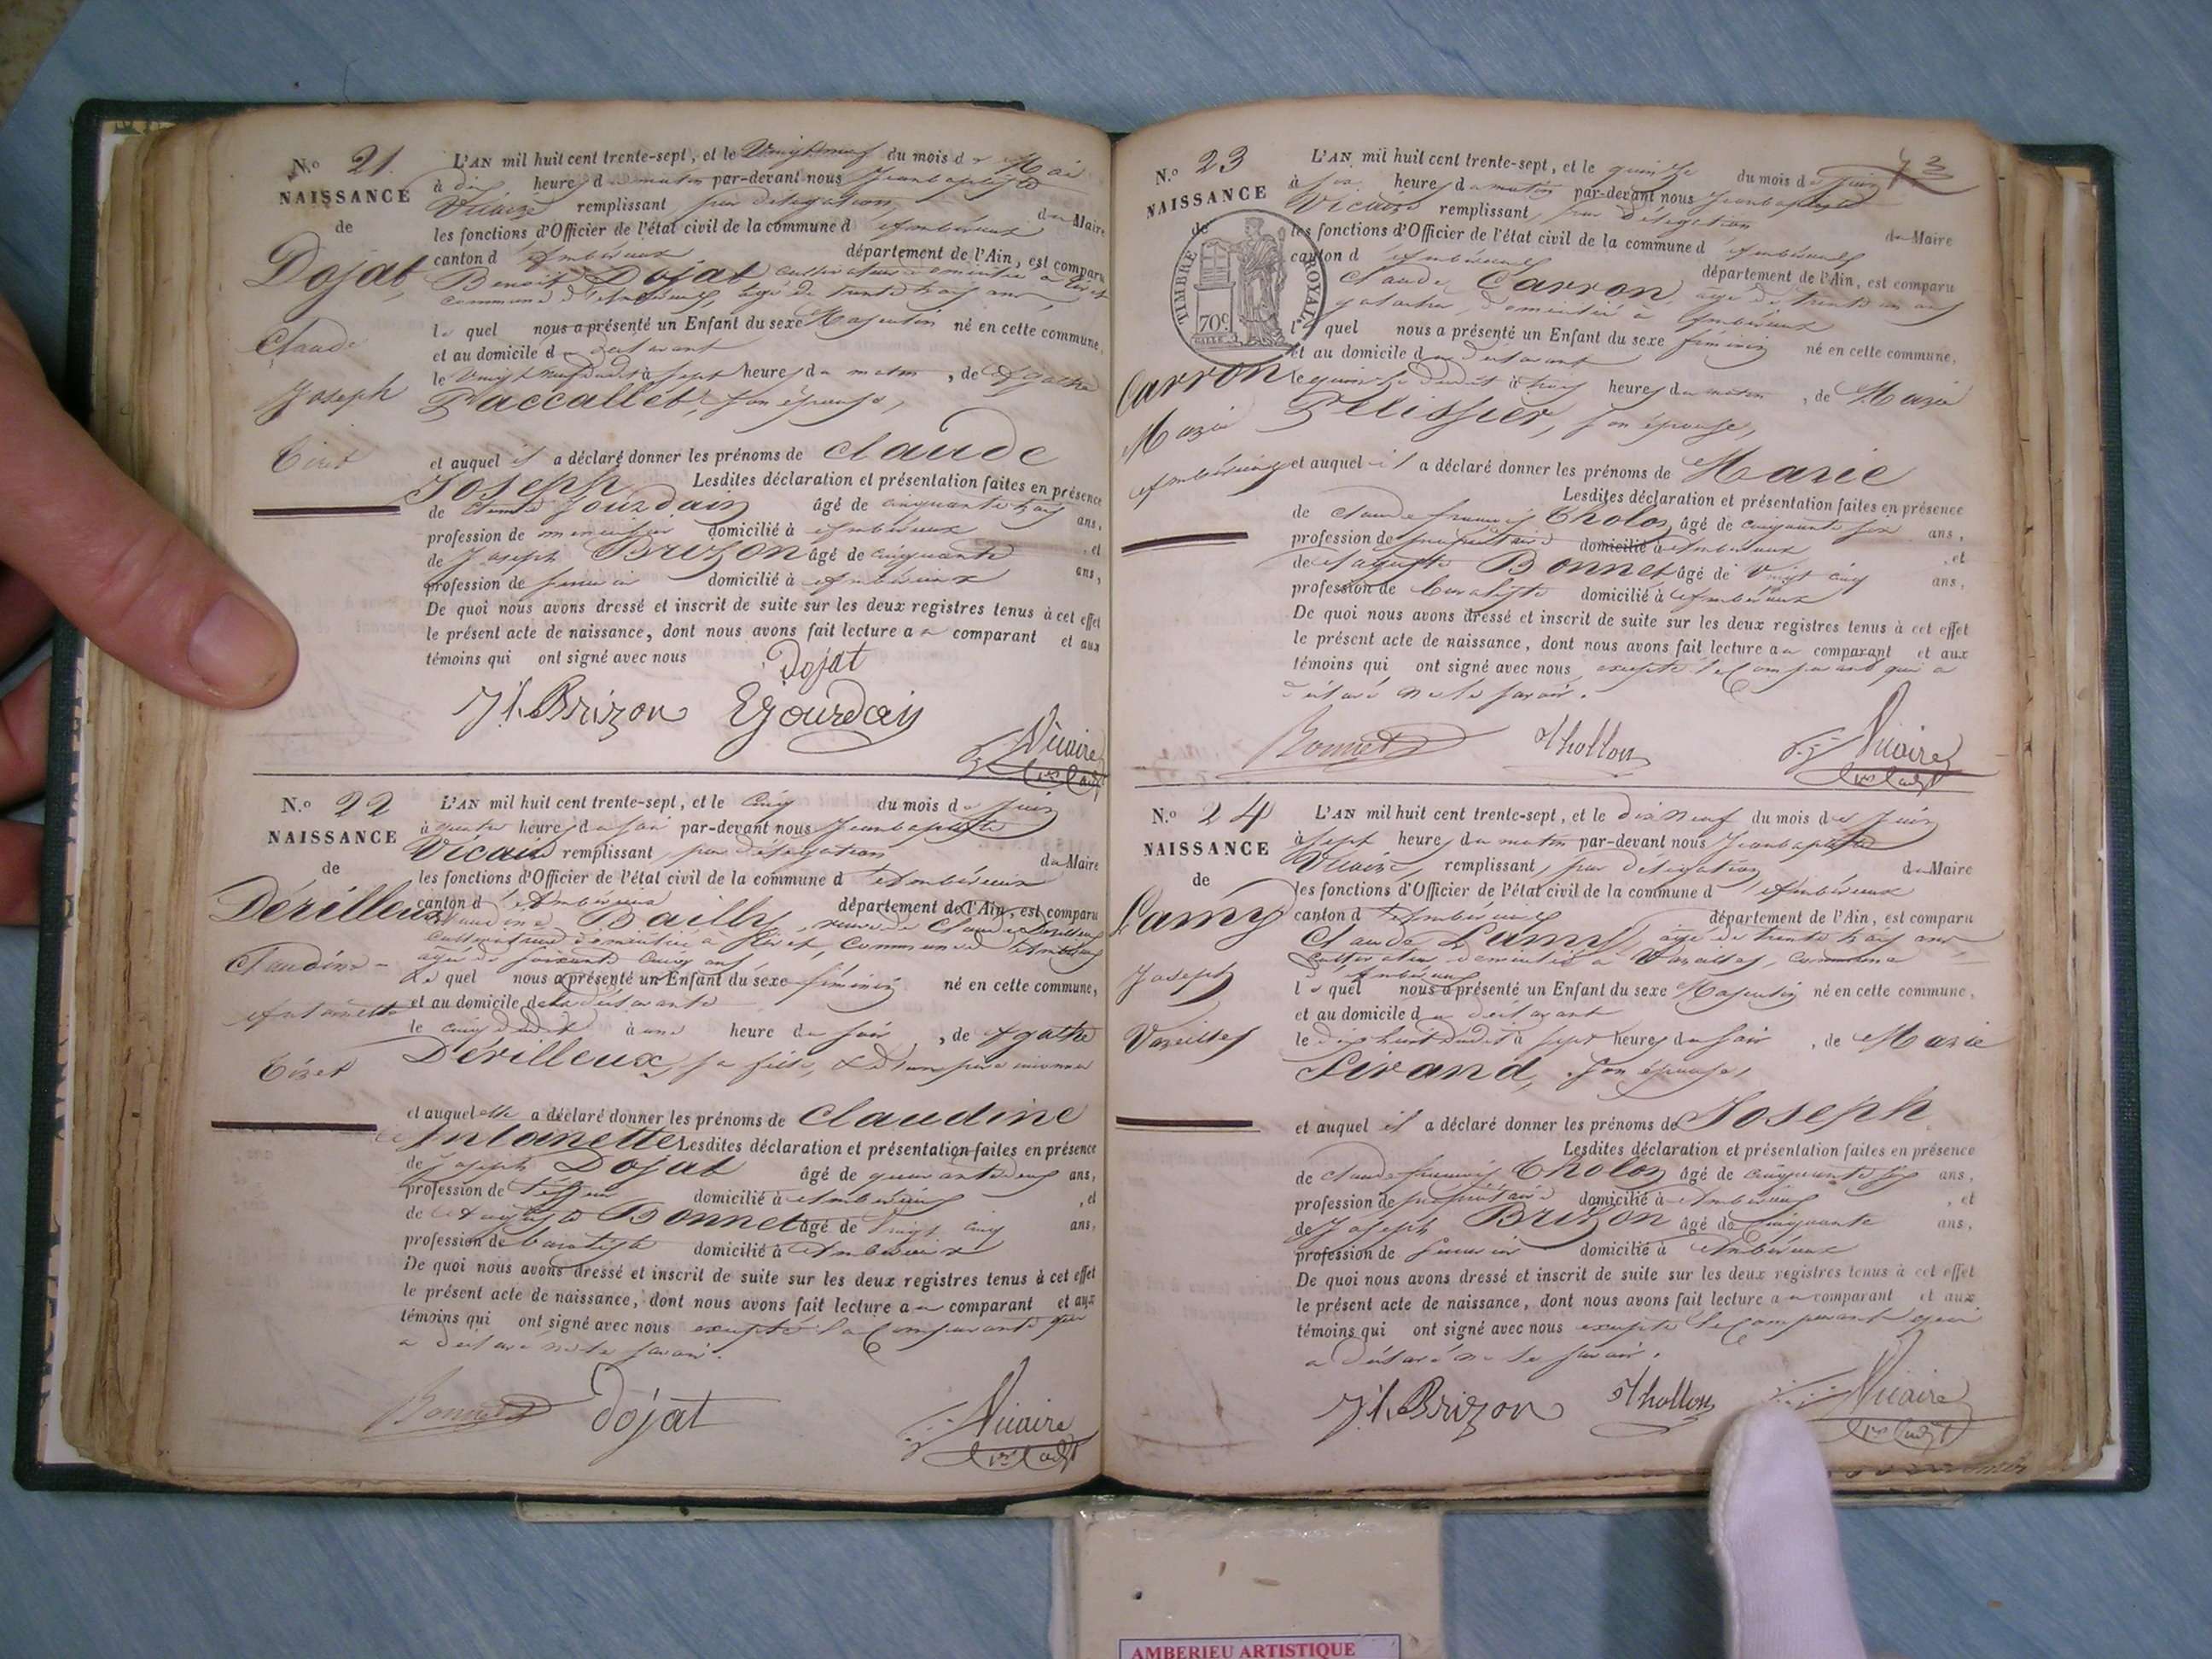 N.o 21.
NAISSANCE
de
Dojat
Claude
Joseph
Tiret
L'AN mil huit cent trente-sept, et le Vingt neuf du mois de Mai
à dix heures du matin par-devant nous Jean baptiste
Vicaire remplissant par délégation, du Maire
les fonctions d'Officier de l'état civil de la commune d'Ambérieux
canton d'Ambérieux département de l'Ain, est comparu
Benoit Dojat cultivateur domicilié à Tiret
commune d'Ambérieux âgé de trente trois ans
le quel nous a présenté un Enfant du sexe Masculin né en cette commune,
et au domicile du déclarant
le Vingt neuf dudit à sept heures du matin, de Agathe
Paccallet, son épouse,
et auquel il a déclaré donner les prénoms de Claude
Joseph Lesdites déclaration et présentation faites en présence
de Jourdain âgé de cinquante trois ans,
profession de menuisier domicilié à Ambérieux, et
de Joseph Brizon âgé de cinquante ans,
profession de domicilié à Ambérieux
De quoi nous avons dressé et inscrit de suite sur les deux registres tenus à cet effet
le présent acte de naissance, dont nous avons fait lecture au comparant et aux
témoins qui ont signé avec nous
Dojat
Jh. Brizon E Jourdain
Vicaire
N.o 22
NAISSANCE
de
Dérilleux
Claudine
Antoinette
Tiret
L'AN mil huit cent trente-sept, et le cinq du mois de Juin
à quatre heures du soir par-devant nous Jean baptiste
Vicaire remplissant par délégation du Maire
les fonctions d'Officier de l'état civil de la commune d'Ambérieux
canton d'Ambérieux département de l'Ain, est comparu
Claudine Bailly, veuve de Claude Dérilleux
cultivatrice domiciliée à Tiret, commune d'Ambérieux
âgée de soixante cinq ans
Le quel nous a présenté un Enfant du sexe féminin né en cette commune,
et au domicile de la déclarante
le cinq dudit à une heure du soir, de Agathe
Dérilleux, sa fille, & d'un père inconnu
et auquel elle a déclaré donner les prénoms de Claudine
Antoinette Lesdites déclaration et présentation faites en présence
de Joseph Dojat âgé de quarante deux ans,
profession de domicilié à Ambérieux, et
de Auguste Bonnet âgé de Vingt cinq ans,
profession de buraliste domicilié à Ambérieux
De quoi nous avons dressé et inscrit de suite sur les deux registres tenus à cet effet
le présent acte de naissance, dont nous avons fait lecture au comparant et aux
témoins qui ont signé avec nous excepté la Comparante qui
a déclaré ne le savoir.
Bonnet Dojat
Vicaire
N.o 23
NAISSANCE
de
TIMBRE ROYAL
70c
Carron
Marie
Ambérieux
L'AN mil huit cent trente-sept, et le quinze du mois de Juin
à six heures du matin par-devant nous Jean baptiste
Vicaire remplissant par délégation du Maire
les fonctions d'Officier de l'état civil de la commune d'Ambérieux
canton d'Ambérieux département de l'Ain, est comparu
Claude Carron, âgé de trente un ans
domicilié à Ambérieux
le quel nous a présenté un Enfant du sexe féminin né en cette commune,
et au domicile du déclarant
le quinze dudit à trois heures du matin, de Marie
Pelissier, son épouse,
et auquel il a déclaré donner les prénoms de Marie
Lesdites déclaration et présentation faites en présence
de Claude françois Tholon âgé de cinquante six ans,
profession de propriétaire domicilié à Ambérieux, et
de Auguste Bonnet âgé de Vingt cinq ans,
profession de buraliste domicilié à Ambérieux
De quoi nous avons dressé et inscrit de suite sur les deux registres tenus à cet effet
le présent acte de naissance, dont nous avons fait lecture au comparant et aux
témoins qui ont signé avec nous excepté le Comparant qui a
déclaré ne le savoir.
Bonnet Thollon
Vicaire
N.o 24
NAISSANCE
de
Lamy
Joseph
Vareilles
L'AN mil huit cent trente-sept, et le dix Neuf du mois de Juin
à sept heures du matin par-devant nous Jean baptiste
Vicaire, remplissant, par délégation, du Maire
les fonctions d'Officier de l'état civil de la commune d'Ambérieux
canton d'Ambérieux département de l'Ain, est comparu
Claude Lamy âgé de trente trois ans
cultivateur domicilié à Vareilles, commune
d'Ambérieux
le quel nous a présenté un Enfant du sexe Masculin né en cette commune,
et au domicile du déclarant
le dix huit dudit à sept heures du soir, de Marie
Sirand, son épouse,
et auquel il a déclaré donner les prénoms de Joseph
Lesdites déclaration et présentation faites en présence
de Claude françois Tholon âgé de cinquante six ans,
profession de propriétaire domicilié à Ambérieux, et
de Joseph Brizon âgé de Cinquante ans,
profession de domicilié à Ambérieux
De quoi nous avons dressé et inscrit de suite sur les deux registres tenus à cet effet
le présent acte de naissance, dont nous avons fait lecture au comparant et aux
témoins qui ont signé avec nous excepté le Comparant qui
a déclaré ne le savoir.
Jh. Brizon Thollon
Vicaire
AMBERIEU ARTISTIQUE